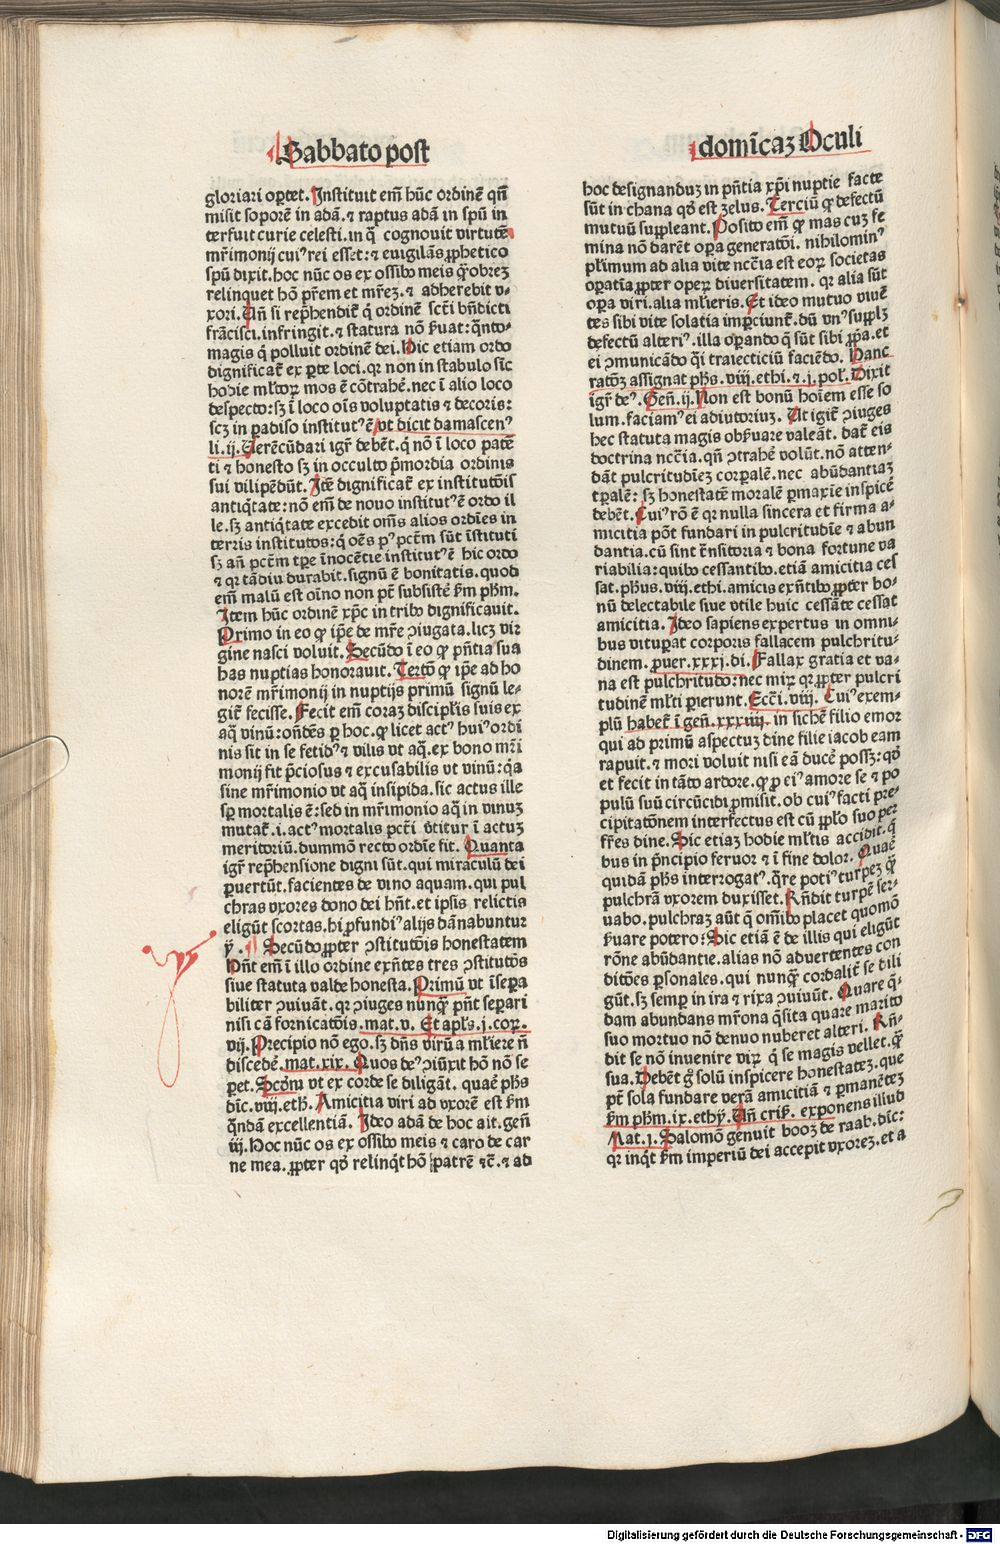 Sabbato post
gloriari oportet. Instituit em̄ hūc ordinē qn̄
misit soporē in adā. ⁊ raptus adā in spū in
terfuit curie celesti. in q̄ cognouit virtutē
mr̄imonij cuiꝰ rei esset: ⁊ euigilās ꝓphetico
spū dixit. hoc nūc os ex ossibꝰ meis q̄obrez
relinquet hō pr̄em et mr̄ez. ⁊ adherebit v-
xori. Un̄ si rep̄hendit̃ q̇ ordinē scti bn̄dicti
frācisci. infringit. ⁊ statura nō ẜuat: q̄nto-
magis q̇ polluit ordinē dei. Hic etiam ordo
dignificat̃ ex ꝑte loci. qꝛ non in stabulo sic
hodie mĺtoꝝ mos ē cōtrahē. nec ī alio loco
despecto: sꝫ ī loco oīs voluptatis ⁊ decoris:
scꝫ in ꝑadiso institutꝰ ē vt dicit damascenꝰ
li. ij. Uerēcūdari igr̄ debēt. q̇ nō ī loco patē
ti ⁊ honesto sꝫ in occulto p̄mordia ordinis
sui vilipēdūt. Itē dignificat̃ ex institutōis
antiq̇tate: nō em̄ de nouo institutꝰ ē ordo il
le. sꝫ antiq̇tate excedit om̄s alios ordīes in
terris institutos: q̇ oēs pꝰ pctm̄ sūt īstituti
sꝫ an̄ pctm̄ tꝑe īnocētie institutꝰ ē hic ordo
⁊ qꝛ tādiu durabit. signū ē bonitatis. quod
em̄ malū est oīno non pt̄ subsistē ẜm phm̄.
Item hūc ordinē xp̄c in tribꝰ dignificauit.
Primo in eo ꝙ ip̄e de mr̄e ↄiugata. licꝫ vir
gine nasci voluit. Secūdo ī eo ꝙ pn̄tia sua
has nuptias honorauit. Tertō ꝙ ip̄e ad ho
norē mr̄imonij in nuptijs primū signū le-
git̃ fecisse. Fecit em̄ coraꝫ discipĺis suis ex
aq̄ vinū: on̄dēs ꝑ hoc. ꝙ licet actꝰ huiꝰ ordi
nis sit in se fetidꝰ ⁊ vilis vt aq̄. ex bono mr̄i
monij fit p̄ciosus ⁊ excusabilis vt vinū: q̇a
sine mr̄imonio vt aq̄ insipida. sic actus ille
sꝑ mortalis ē: sed in mr̄imonio aq̄ in vinuꝫ
mutat̃. i. actꝰ mortalis pcti vtitur ī actuꝫ
meritoriū. dummō recto ordīe fit. Quanta
igr̄ rep̄hensione digni sūt. qui miraculū dei
ꝑuertūt. facientes de vino aquam. qui pul
chras vxores dono dei hn̄t. et ipsis relictis
eligūt scortas. hi ꝓfundiꝰ alijs dānabuntur
ẏ. ¶ Secūdo ꝓpter ↄstitutōis honestatem
Hn̄t em̄ ī illo ordine exn̄tes tres ↄstitutōs
siue statuta valde honesta. Primū vt īsepa
biliter ↄuiuāt. qꝛ ↄiuges nunqꝫ pn̄t separi
nisi cā fornicatōis. mat. v. Et apĺs. j. coꝝ.
vij. Precipio nō ego. sꝫ dn̄s virū a mĺiere n̄
discedē. mat. xix. Quos deꝰ ↄiūxit hō nō se
ꝑet. Scd̄m vt ex corde se diligāt. quaē phs
dic̄. viij. eth. Amicitia viri ad vxorē est ẜm
q̄ndā excellentiā. Ideo adā de hoc ait. gen̄
iij. Hoc nūc os ex ossibꝰ meis ⁊ caro de car
ne mea. ꝓpter qd̄ relinq̇t hō patrē ⁊c̄. ⁊ ad
domīcaꝫ Oculi
hoc designanduꝫ in pn̄tia xp̄i nuptie facte
sūt in chana qd̄ est ꝫelus. Terciū ꝙ defectū
mutuū suppleant. Posito em̄ ꝙ mas cuꝫ fe
mina nō darēt oꝑa generatōi. nihilominꝰ
pĺimum ad alia vite nccīa est eoꝝ societas
oꝑatīa ꝓpter oꝑꝝ diuersitatem. qꝛ alia sūt
oꝑa viri. alia mĺieris. Et ideo mutuo viuē
tes sibi vite solatia imꝑciunt̃. dū vnꝰ suppĺꝫ
defectū alteriꝰ. illa oꝑando q̄ sūt sibi ꝓpa. et
ei ↄmunicādo q̄i traiecticiū faciēdo. Hanc
ratōꝫ assignat phs. viij. ethi. ⁊. j. pol. Dixit
igr̄ deꝰ. Gen̄. ij. Non est bonū hoīem esse so
lum. faciamꝰ ei adiutoriuꝫ. Ut igit̃ ↄiuges
hec statuta magis obẜuare valeāt. dat̃ eis
doctrina nccīa. qn̄ ↄtrahē volūt. nō atten-
dāt pulcritudiēꝫ corꝑalē. nec abūdantiaꝫ
tꝑalē: sꝫ honestatē moralē ꝑmaxīe inspicē
debēt. Cuiꝰ rō ē qꝛ nulla sincera et firma a-
micitia pōt fundari in pulcritudīe ⁊ abun
dantia. cū sint trn̄sitoria ⁊ bona fortune va
riabilia: quibꝰ cessantibꝰ. etiā amicitia ces
sat. phus. viij. ethi. amicis exn̄tibꝰ ꝓpter bo-
nū delectabile siue vtile huic cessāte cessat
amicitia. Ideo sapiens expertus in omni-
bus vituꝑat corporis fallacem pulchritu-
dinem. ꝓuer. xxxj. di. Fallax gratia et va-
na est pulchritudo: nec miꝝ qꝛ ꝓpter pulcri
tudinē mĺti ꝑierunt. Eccī. viij. Cuiꝰ exem-
plū habet̃ ī gen̄. xxxiiij. in sichē filio emor
qui ad primū aspectuꝫ dine filie iacob eam
rapuit. ⁊ mori voluit nisi eā ducē possꝫ: qd̄
et fecit in tāto ardore. ꝙ ꝑ eiꝰ amore se ⁊ po
pulū suū circūcidi ꝑmisit. ob cuiꝰ facti pre-
cipitatōnem interfectus est cū ppĺo suo per
fr̄es dine. Sic etiaꝫ hodie mĺtis accidit. q̇
bus in p̄ncipio feruor ⁊ ī fine dolor. Quaē
quidā phs interrogatꝰ. q̄re potiꝰ turpeꝫ q̄ꝫ
pulchrā vxorem duxisset. Rn̄dit turpē ser-
uabo. pulchraꝫ aūt q̄ om̄ibꝰ placet quomō
ẜuare potero: Sic etiā ē de illis qui eligūt
rōne abūdantie. alias nō aduertentes con
ditōes ꝑsonales. qui nunqꝫ cordalit̃ se dili
gūt. sꝫ semꝑ in ira ⁊ rixa ↄuiuūt. Quare q̄-
dam abundans mr̄ona q̄sita quare marito
suo mortuo nō denuo nuberet alteri. Rn̄-
dit se nō inuenire viꝝ q̇ se magis vellet. q̄ꝫ
sua. Debēt ḡ solū inspicere honestateꝫ. que
pt̄ sola fundare verā amicitiā ⁊ ꝑmanētēꝫ
ẜm phm̄. ix. ethy. Un̄ cris̄. exponens illud
Mat. j. Salomō genuit booꝫ de raab. dic̄:
qꝛ inq̇t ẜm imperiū dei accepit vxoreꝫ. et a
Digitalisierung gefördert durch die Deutsche Forschungsgemeinschaft - DFG